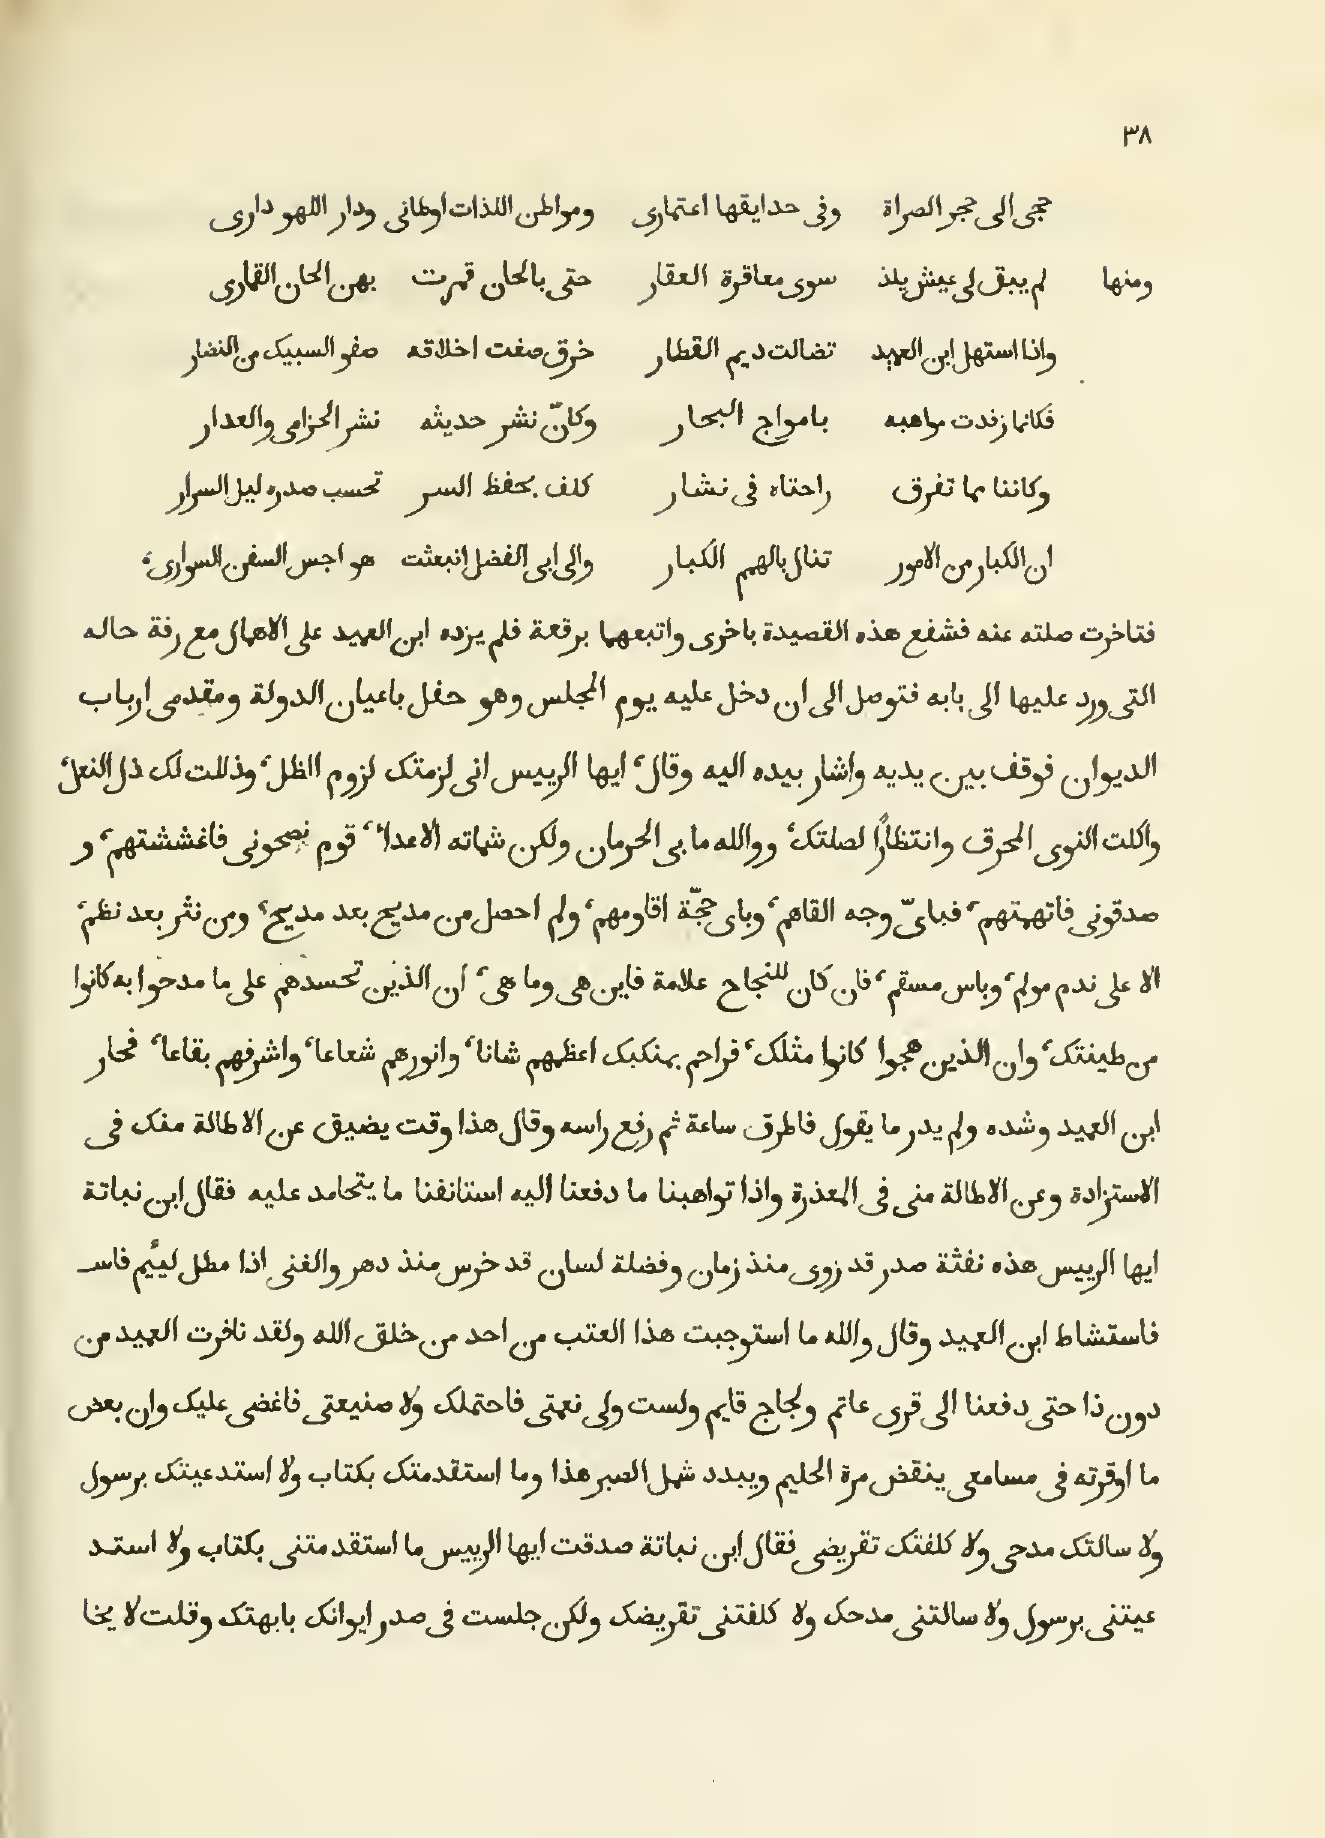 ٣٨
حجى الى حجر الصراة وفى حدايقها اعتمارى ومواطن اللذات اوطانى ودار اللهو دارى
ومنها لم يبق لى عيش يلذ سوى معاقرة العقار حتى بالحان قمرت بهن الحان القمارى
واذا استهل ابن العميد تضالت ديم القطار خرق صفت اخلاقه صفو السبيک من النضار
فکانما زفدت مواهبه بامواج البحار وکانّ نشر حديثه نشر الخزامى والعدار
وکاننا مما تفرق راحتاه فى نشار کلف بحفظ السر تحسب صدره ليل السرار
ان الکبار من الامور تنال بالهمم الکبار والى ابى الفضل انبعثت هو اجس السفن السوارى،
فتاخرت صلته عنه فشفع هذه القصيدة باخرى واتبعهما برقعة فلم يزده ابن العميد على الاهمال مع رقة حاله
التى ورد عليها الى بابه فتوصل الى ان دخل عليه يوم المجلس وهو حفل باعيان الدولة ومقدمى ارباب
الديوان فوقف بين يديه واشار بيده اليه وقال، ايها الرييس انى لزمتک لزوم الظل، وذللت لک ذل النعل،
واکلت النوى المحرق وانتظارًا لصلتک، ووالله ما بى الحرمان ولکن شماته الاعدا، قوم نصحونى فاغششتهم، و
صدقونى فاتهمتهم، فباىّ وجه القاهم، وباى حجّة اقاومهم، ولم احصل من مديح بعد مديح، ومن نثر بعد نظم،
الا على ندم مولم، وباس مسقم، فان کان للنجاح علامة فاين هى وما هى، ان الذين تحسدهم على ما مدحوا به کانوا
من طينتک، وان الذين هجوا کانوا مثلک، فزاحم بمنکبک اعظمهم شانا، وانورهم شعاعا، واشرفهم بقاعا، فحار
ابن العميد وشده ولم يدر ما يقول فاطرق ساعة ثم رفع راسه وقال هذا وقت يضيق عن الاطالة منک فى
الاستزادة وعن الاطالة منى فى المعذرة واذا تواهبنا ما دفعنا اليه استانفنا ما يتحامد عليه فقال ابن نباتة
ايها الرييس هذه نفثة صدر قد زوى منذ زمان وفضلة لسان قد خرس منذ دهر والغنى اذا مطل لييم فاسـ
فاستشاط ابن العميد وقال والله ما استوجبت هذا العتب من احد من خلق الله ولقد نافرت العميد من
دون ذا حتى دفعنا الى قرى عاتم ولجاج قايم ولست ولى نعمتى فاحتملک ولا صنيعتى فاغضى عليک وان بعض
ما اوقرته فى مسامعى ينقض مرة الحليم ويبدد شمل الصبر هذا وما استقدمتک بکتاب ولا استدعيتک برسول
ولا سالتک مدحى ولا کلفتک تقريضى فقال ابن نباتة صدقت ايها الرييس ما استقدمتنى بکتاب ولا استـد
عيتنى برسول ولا سالتنى مدحک ولا کلفتنى تقريضک ولکن جلست فى صدر ايوانک بابهتک وقلت لا يخا